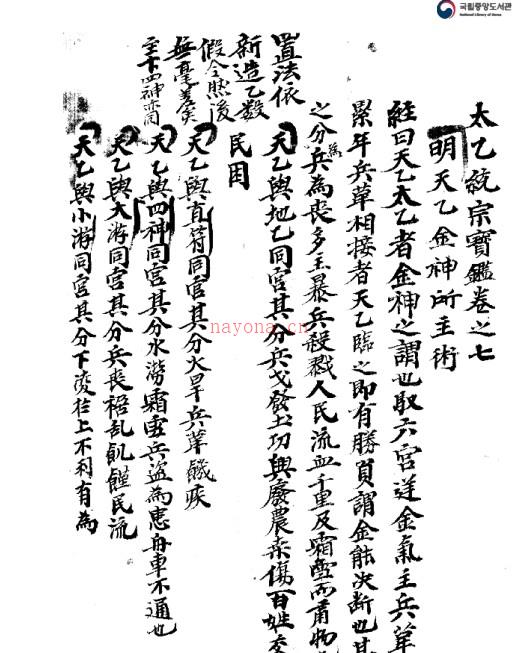 국립중앙도서관
National Library of Korea
太乙統宗寶鑑卷之七
明天乙金神所主術
經曰天乙太乙者金神之謂也取六宮逆金氣主兵革
累年兵革相接者天乙臨之即有勝負謂金能決斷也其
之分兵為喪多主暴兵殺戮人民流血千里及霜雪而肅物
為
天乙與地乙同宮其分兵戈發土功興廢農桑傷百姓
民困
天乙與直符同宮其分大旱兵革饑疾
天乙與四神同宮其分水澇霜雪兵盜為患舟車不通也
天乙與大游同宮其分兵喪禍乱飢饉民流
天乙與小游同宮其分下凌於上不利有為
置法依
新造乙數
假令然後
無毫差矣
主下四神亦同
nayona.cn